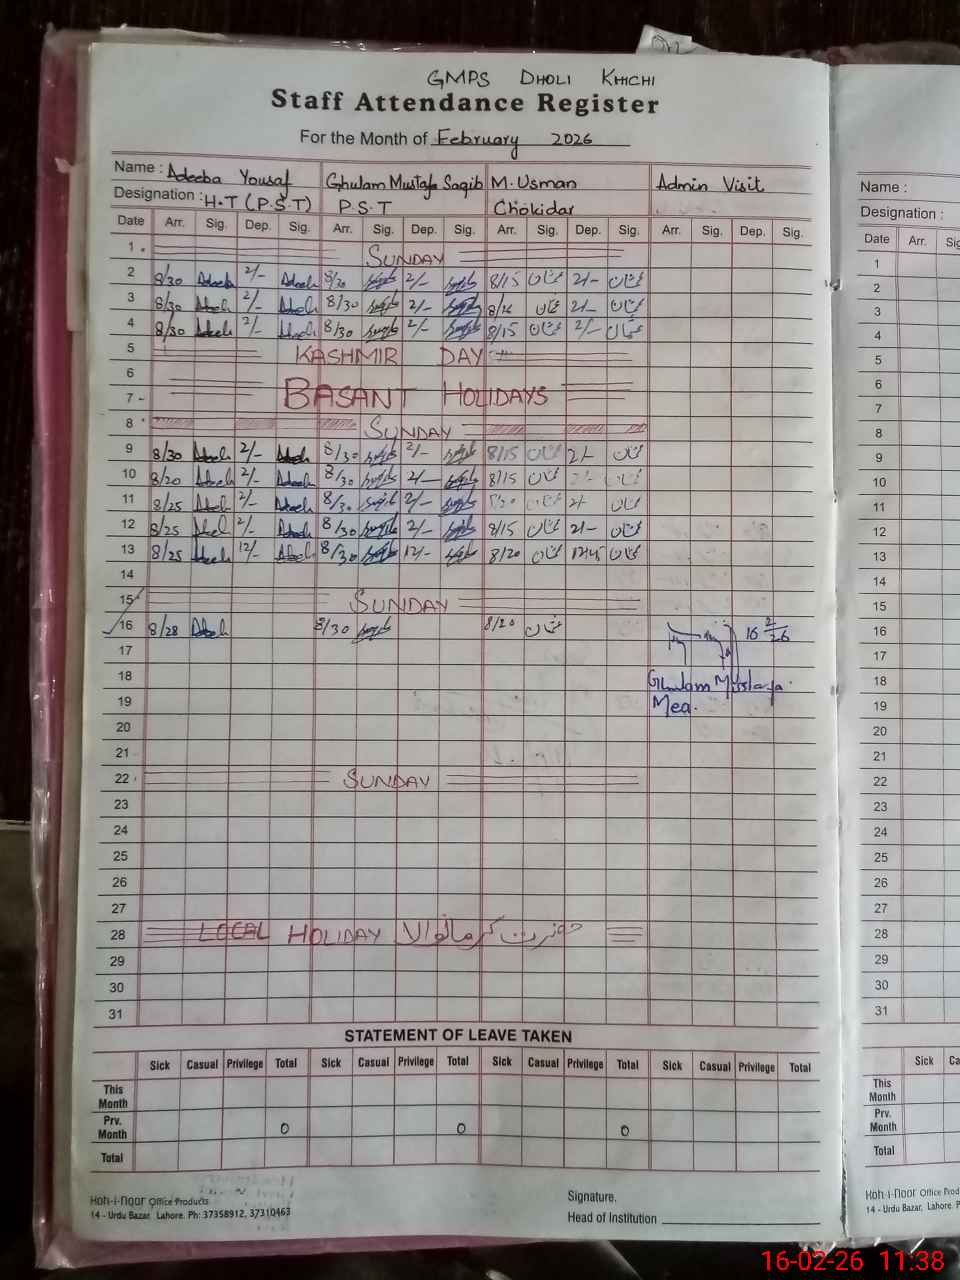 GMPS DHOLI KHICHI
Staff Attendance Register
For the Month of February 2026
Name : Adeeba Yousaf Ghulam Mustafa Saqib M. Usman Admin Visit
Designation : H.T (P.S.T) P.S.T Chokidar
Date Arr. Sig. Dep. Sig. Arr. Sig. Dep. Sig. Arr. Sig. Dep. Sig. Arr. Sig. Dep. Sig.
1 SUNDAY
2 8/30 Adeeba 2/- Adeeb 8/30 2/- 8/15 عثمان 2/- عثمان
3 8/30 Adeeb 2/- Adeeb 8/30 2/- عثمان 2/- عثمان
4 8/30 Adeeb 2/- Adeeb 8/30 2/- 8/15 عثمان 2/- عثمان
5 KASHMIR DAY
6
7 BASANT HOLIDAYS
8 SUNDAY
9 8/30 Adeeb 2/- Adeeb 8/30 2/- 8/15 عثمان 2/- عثمان
10 8/20 Adeeb 2/- Adeeb 8/30 2/- 8/15 عثمان 2/- عثمان
11 8/25 Adeeb 2/- Adeeb 8/30 2/- 8/20 عثمان 2/- عثمان
12 8/25 Adeeb 2/- Adeeb 8/30 2/- 8/15 عثمان 2/- عثمان
13 8/25 Adeeb 12/- Adeeb 8/30 12/- 8/20 عثمان عثمان
14
15 SUNDAY
16 8/28 Adeeb 8/30 8/20 عثمان 16 2/26
17
18 Ghulam Mustafa
19 Mea.
20
21
22 SUNDAY
23
24
25
26
27
28 LOCAL HOLIDAY حضرت کرمانوالا
29
30
31
STATEMENT OF LEAVE TAKEN
Sick Casual Privilege Total Sick Casual Privilege Total Sick Casual Privilege Total Sick Casual Privilege Total
This Month
Prv. Month 0 0 0
Total
Koh-i-Noor Office Products
14 - Urdu Bazar, Lahore. Ph: 37358912, 37310463
Signature.
Head of Institution
Name :
Designation :
Date Arr. Sig
1
2
3
4
5
6
7
8
9
10
11
12
13
14
15
16
17
18
19
20
21
22
23
24
25
26
27
28
29
30
31
Sick Ca
This Month
Prv. Month
Total
Koh-i-Noor Office Products
14 - Urdu Bazar, Lahore. P
16-02-26 11:38